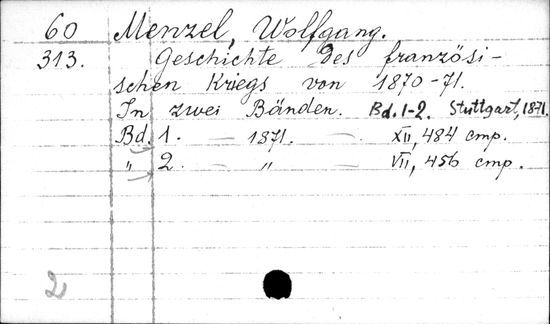 60 Menzel, Wolfgang.
313. Geschichte des französi-
schen Kriegs von 1870-71.
In zwei Bänden. Bd. 1-2. Stuttgart, 1871.
Bd. 1. — 1871. — XII, 484 стр.
" 2. — " — VII, 456 стр.
2